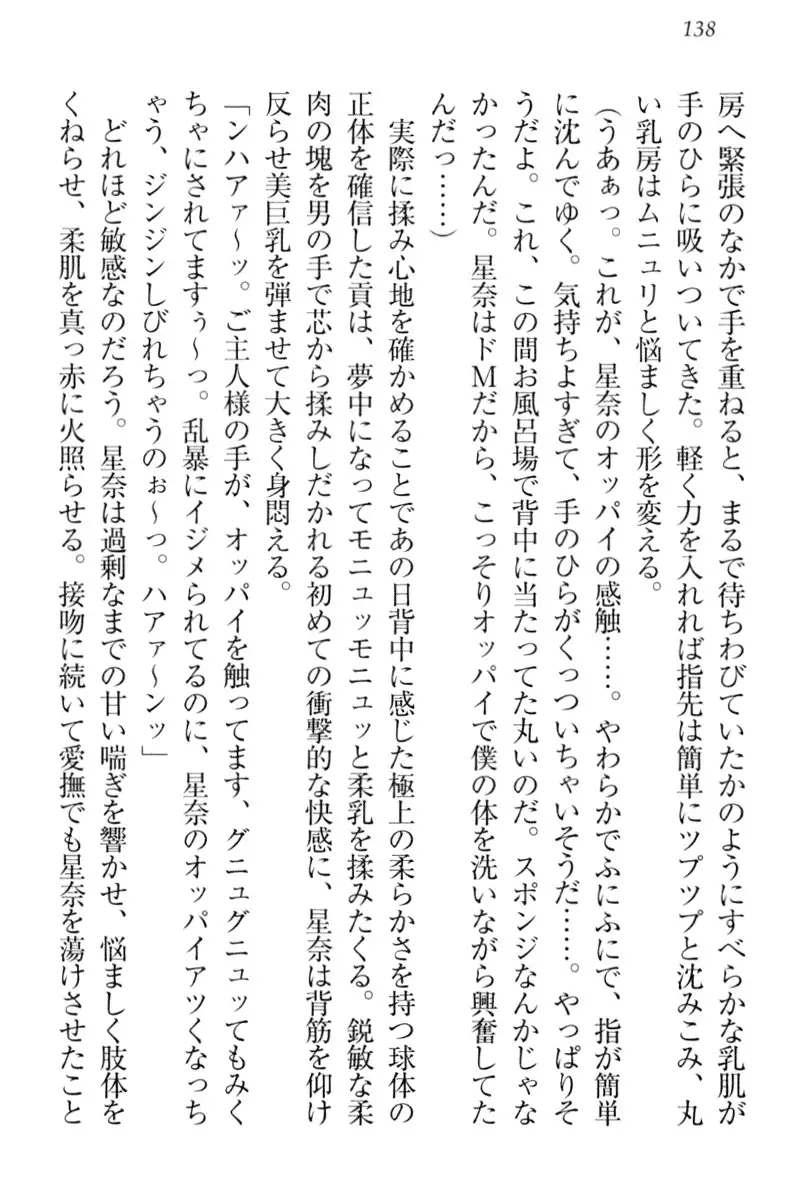 138
房へ緊張のなかで手を重ねると、まるで待ちわびていたかのようにすべらかな乳肌が
手のひらに吸いついてきた。軽く力を入れれば指先は簡単にツプツプと沈みこみ、丸
い乳房はムニュリと悩ましく形を変える。
(うあぁっ。これが、星奈のオッパイの感触……。やわらかでふにふにで、指が簡単
に沈んでゆく。気持ちよすぎて、手のひらがくっついちゃいそうだ……。やっぱりそ
うだよ。これ、この間お風呂場で背中に当たってた丸いのだ。スポンジなんかじゃな
かったんだ。星奈はドMだから、こっそりオッパイで僕の体を洗いながら興奮してた
んだっ……)
実際に揉み心地を確かめることであの日背中に感じた極上の柔らかさを持つ球体の
正体を確信した貢は、夢中になってモニュッモニュッと柔乳を揉みたくる。鋭敏な柔
肉の塊を男の手で芯から揉みしだかれる初めての衝撃的な快感に、星奈は背筋を仰け
反らせ美巨乳を弾ませて大きく身悶える。
「ンハアァ〜ッ。ご主人様の手が、オッパイを触ってます、グニュグニュッてもみく
ちゃにされてますぅ〜っ。乱暴にイジメられてるのに、星奈のオッパイアツくなっち
ゃう、ジンジンしびれちゃうのぉ〜っ。ハアァ〜ンッ」
どれほど敏感なのだろう。星奈は過剰なまでの甘い喘ぎを響かせ、悩ましく肢体を
くねらせ、柔肌を真っ赤に火照らせる。接吻に続いて愛撫でも星奈を蕩けさせたこと